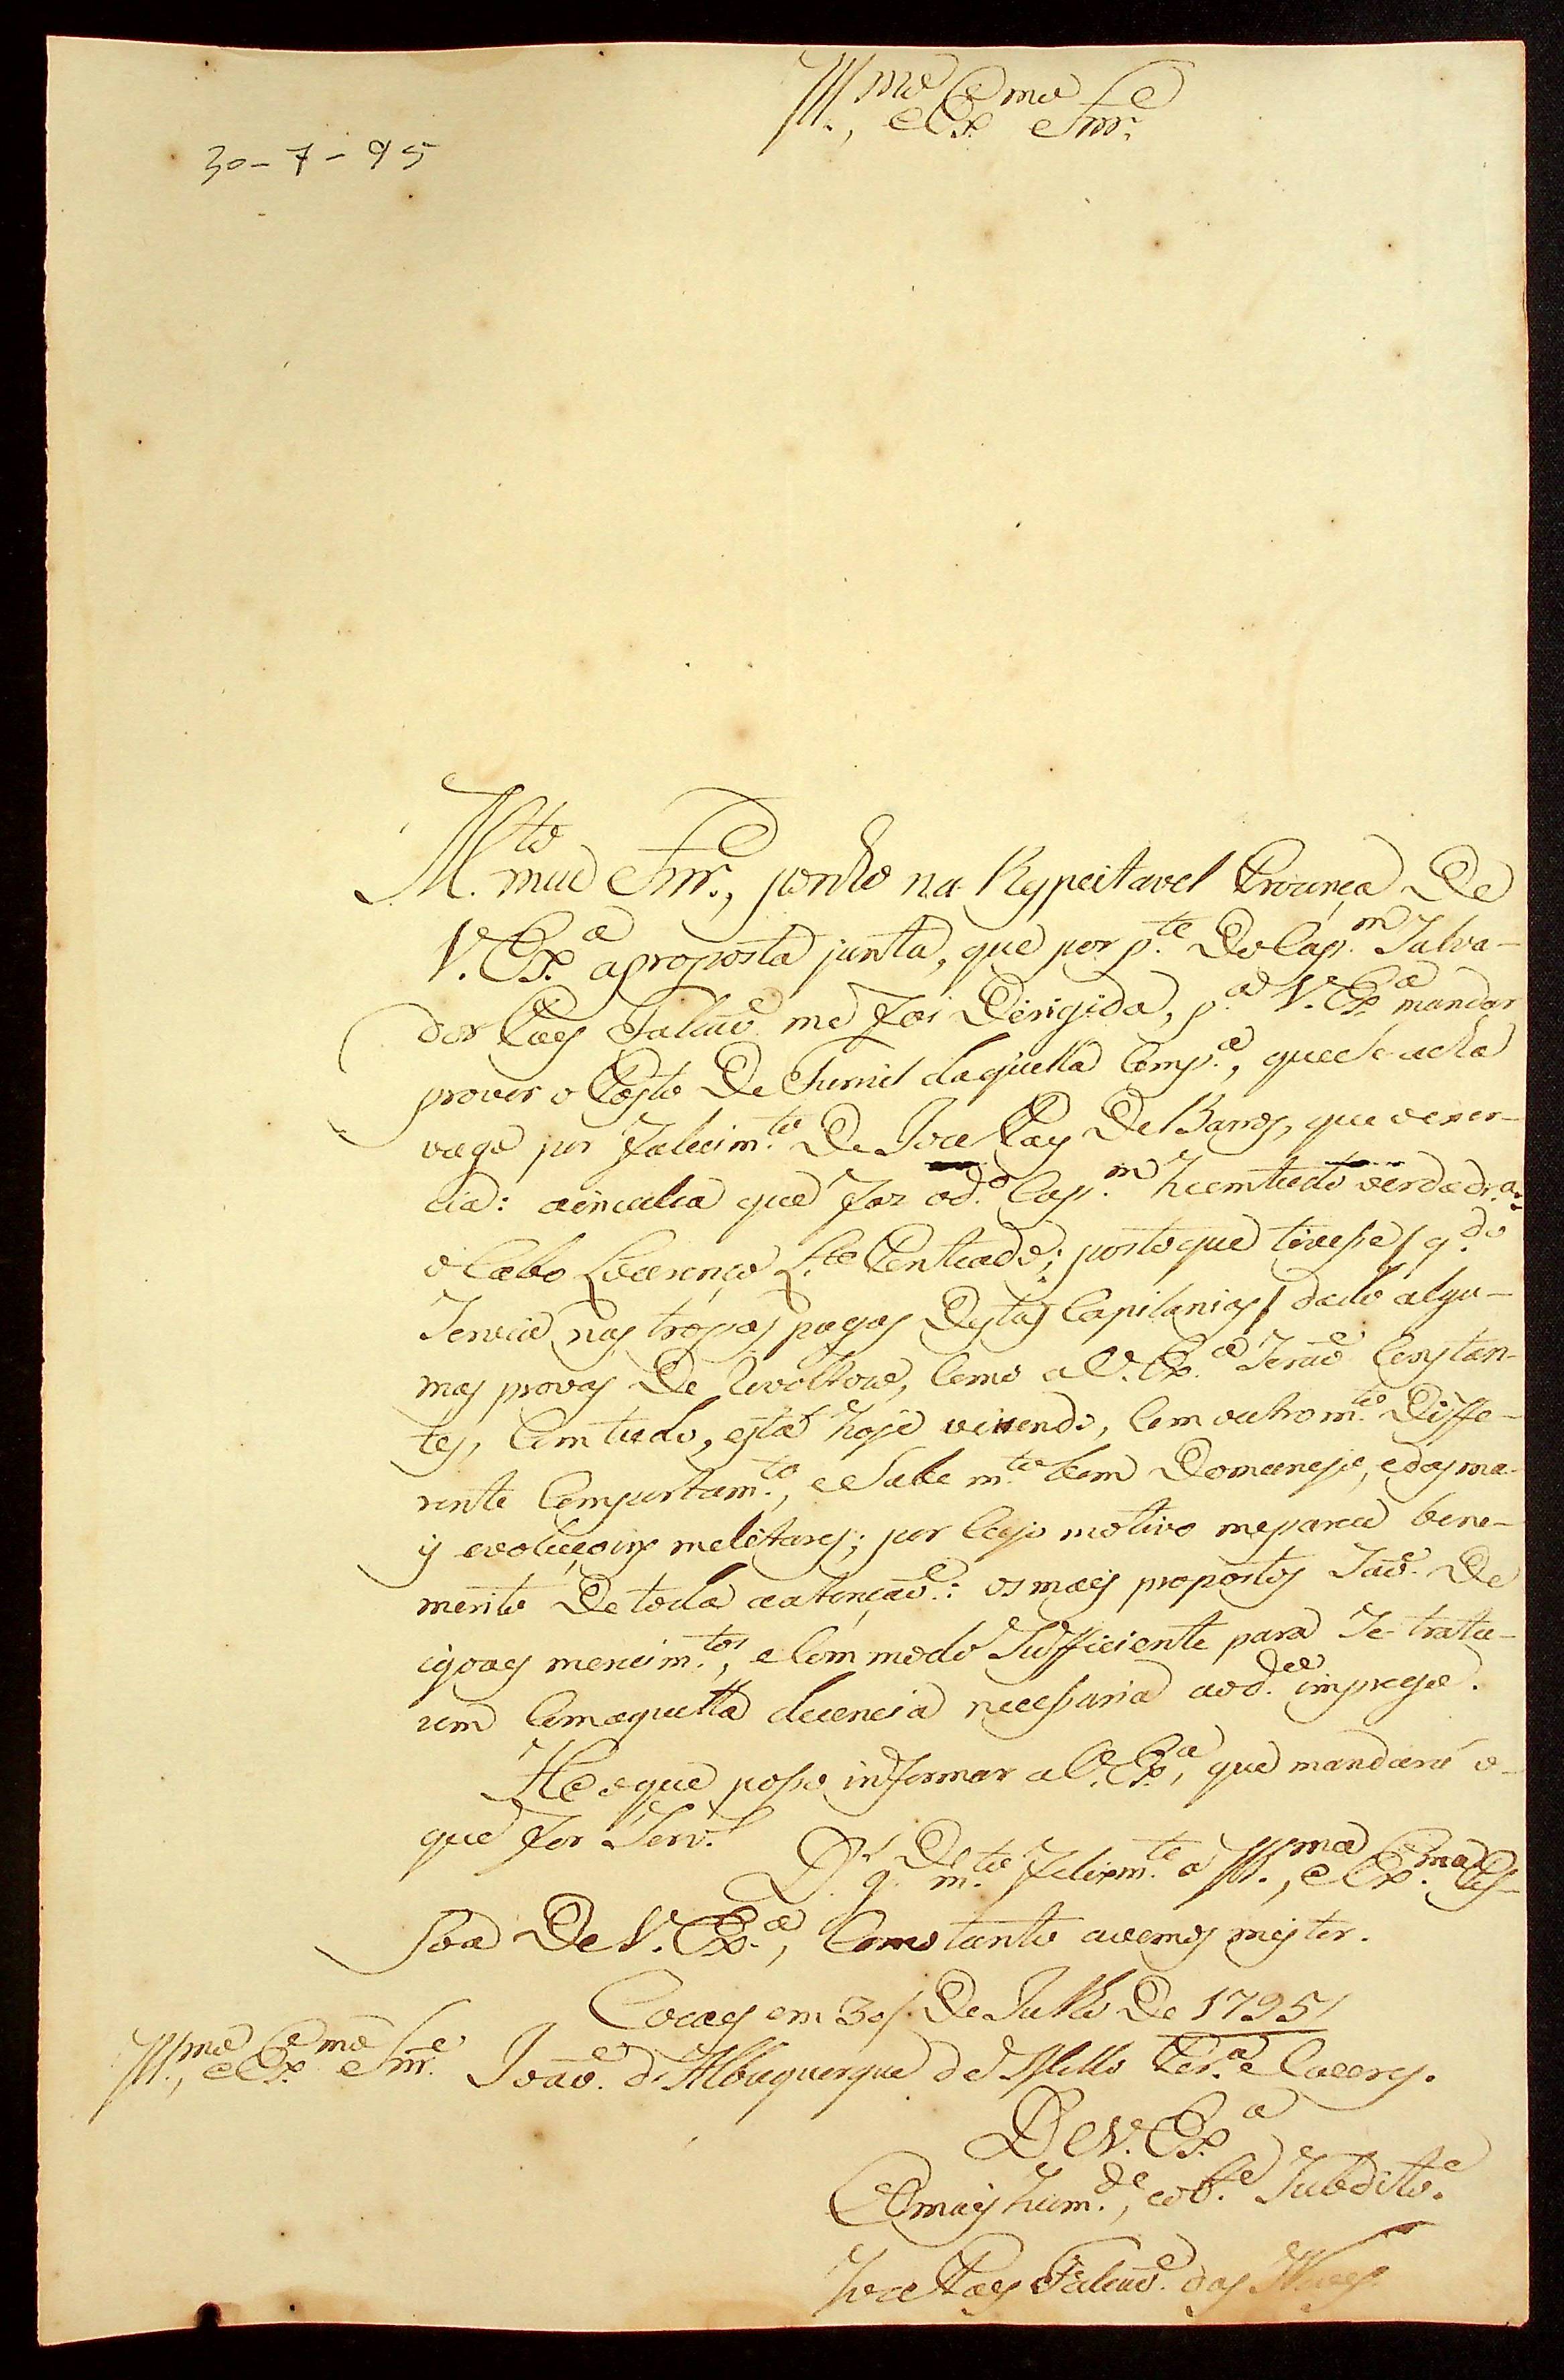 Ill.mo e Ex.mo Snr.
30-7-95
M.to meu Snr., ponho na Respeitavel Prezença De
V. Ex.a aproposta junta, que por p.te Do Cap.m Salva-
dor Paes Falcaõ me foi Dirigida, p.a V. Ex.a mandar
prover o Posto De Furriel daquella Comp.a, que se acha
vago por falecim.to De Joze Paes De Barros, que oexer-
cia: ainculca que faz od.o Cap.m he em tudo verdadr.a:
o Cabo Lourenço Leite Penteado; posto que tivesse / q.do
Servio nas tropas pagas Destas Capitanias / dado algu-
mas provas De revoltozo, Como a V. Ex.a Seraõ Constan-
tes, Com tudo, está hoje vivendo, Com outro m.to Diffe-
rente Comportam.to, e Sabe m.to bem Domanejo, e das ma-
is evoluçoins melitares; por Cujo motivo meparece bene-
merito De toda aatençaõ: os mais propostos Saõ De
igoaes merecim.tos, e Com modo Sufficiente para Se trata-
rem Comaquella decencia necessaria aod.o imprego.
He oque posso informar a V. Ex.a, que mandará o-
que for Serv.
D.s g.De m.to felizm.te a Ill.ma, e Ex.ma Pes-
soa De V. Ex.a, Como tanto avemos mister.
Cocaes em 30 / De Julho De 1795 /
Ill.mo, e Ex.mo Snr. Joaõ d'Albuquerque de Mello Per.a e Caceres.
De V. Ex.a
O mais hum.de, e ob.e Subdito.
Joze Paes Falcaõ das Neves